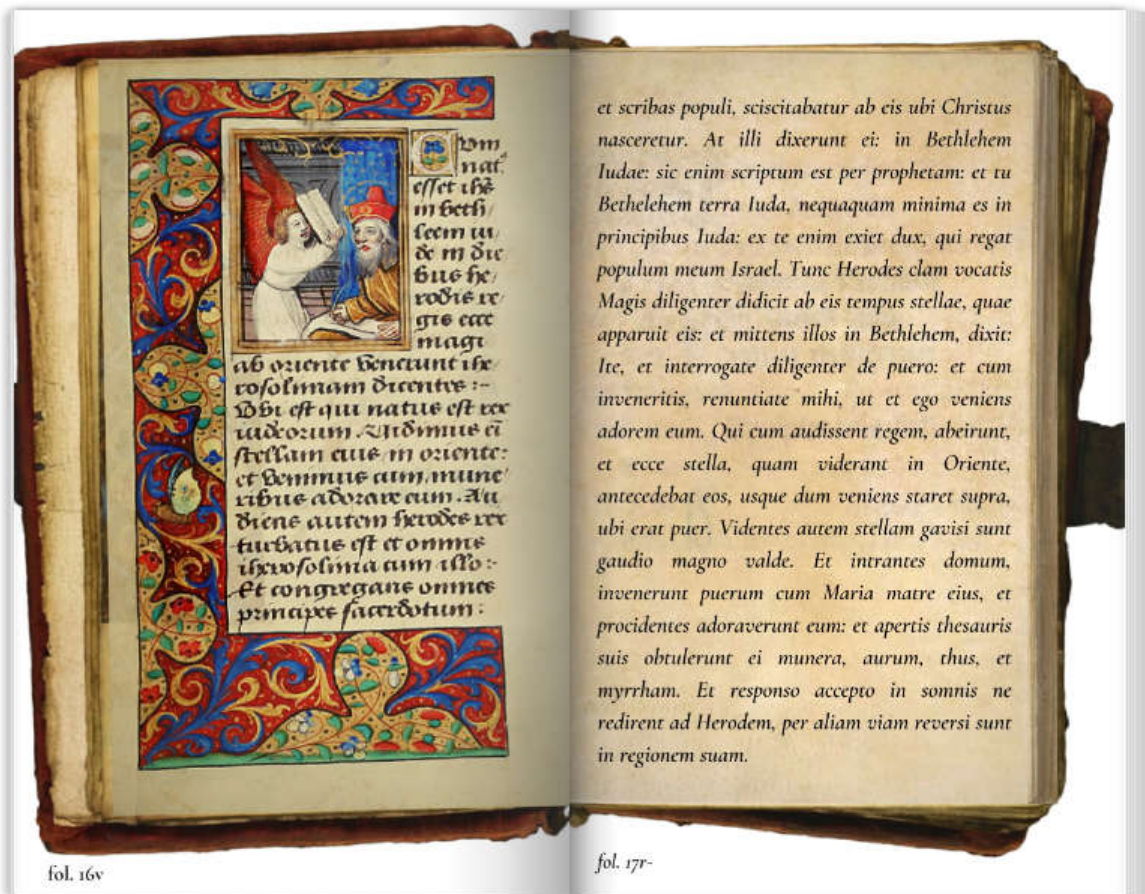 Cum
nat⁹
esset ihs̄
in beth/
leem iu/
de in die
bus he/
rodis re/
gis ecce
magi
ab oriente venerunt ihe/
rosolimam dicentes :-
Vbi est qui natus est rex
iudeorum. Vidimus eī
stellam eius in oriente:
et venimus cum mune/
ribus adorare eum. Au
diens autem herodes rex
turbatus est et omnis
iherosolima cum illo :-
Et congregans omnes
principes sacerdotum :
fol. 16v
et scribas populi, sciscitabatur ab eis ubi Christus
nasceretur. At illi dixerunt ei: in Bethlehem
Iudae: sic enim scriptum est per prophetam: et tu
Bethelehem terra Iuda, nequaquam minima es in
principibus Iuda: ex te enim exiet dux, qui regat
populum meum Israel. Tunc Herodes clam vocatis
Magis diligenter didicit ab eis tempus stellae, quae
apparuit eis: et mittens illos in Bethlehem, dixit:
Ite, et interrogate diligenter de puero: et cum
inveneritis, renuntiate mihi, ut et ego veniens
adorem eum. Qui cum audissent regem, abeirunt,
et ecce stella, quam viderant in Oriente,
antecedebat eos, usque dum veniens staret supra,
ubi erat puer. Videntes autem stellam gavisi sunt
gaudio magno valde. Et intrantes domum,
invenerunt puerum cum Maria matre eius, et
procidentes adoraverunt eum: et apertis thesauris
suis obtulerunt ei munera, aurum, thus, et
myrrham. Et responso accepto in somnis ne
redirent ad Herodem, per aliam viam reversi sunt
in regionem suam.
fol. 17r-